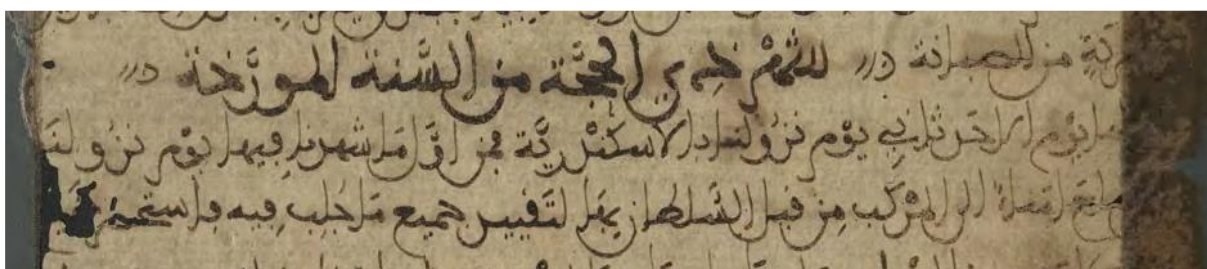 من الصبانة شهر ذي الحجَّة من السَّنة المورَّخة
يوم الاحد ثاني يوم نزولنا بالاسكندريَّة فمن اوَّل ما شهدنا فيها يوم نزولنا
طلع امناء الى المركب من قبل السلطان بها لتقييد جميع ما جلب فيه فاستحضر